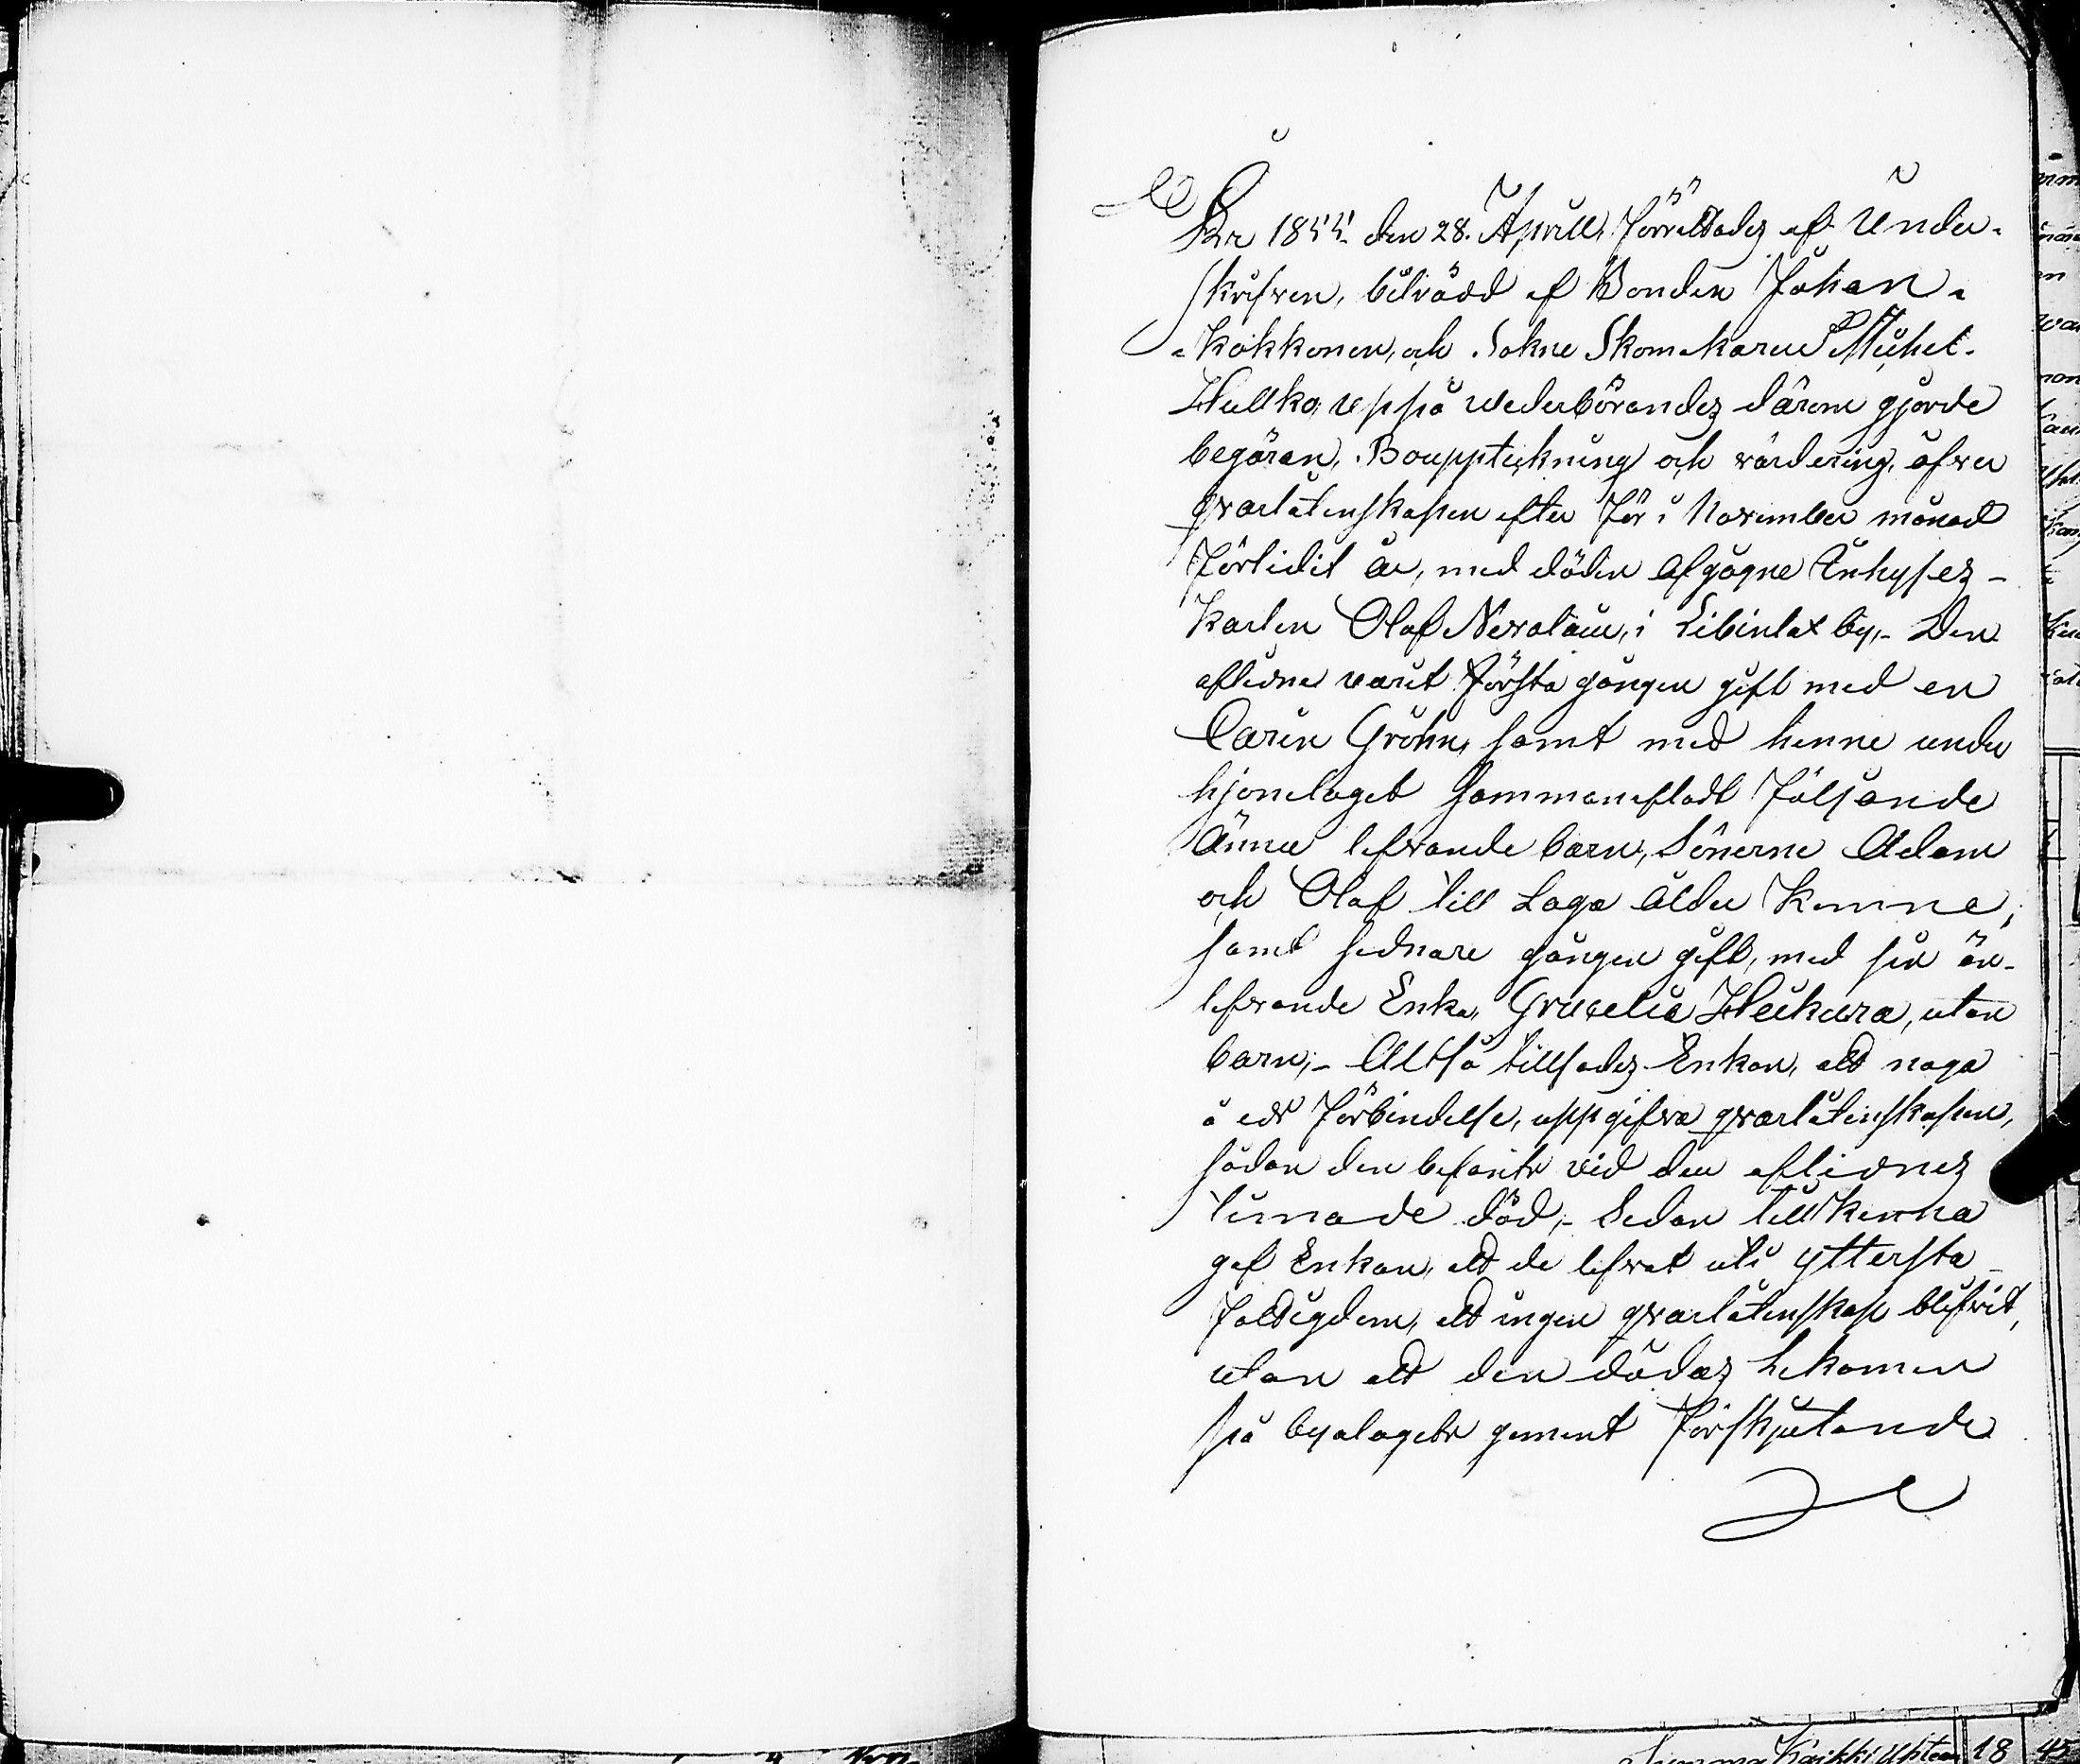 År 1855 den 28. Aprill, förrättades af Under-
skrifven, biträdd af Bonden Johan
Kokkonen, och Sokne Skomakaren Michel
Hullko, uppå wederbörandes därom gjorde
begäran, Bouppteckning och värdering, öfver
qvarlåtenskapen efter för i November månad
förlidit år, med döden afgågne Inhyses-
Karlen Olof Nevalain, i Libinlax by,- Den
aflidne varit första gången gift med en
Carin Gröhn, samt med henne under
hjonelaget sammanafladt följande
ännu lefvande barn, Sönerne Adam
och Olof till Laga ålder komne,
samt sednare gången gift, med sin än-
lefvande Enka, Gruelia Heikura, utan
barn;- Alltså tillsades Enkan, att noga
å eds förbindelse, uppgifva qvarlåtenskapen,
sådan den befants vid den aflidnes
timade död,- Sedan tillkenna
gaf Enkan, att de lefvat uti yttersta
fattigdom, att ingen qvarlåtenskap blifvit,
utan att den dödas lekamen
på byalagets gement förskjutande
Summa 18 45